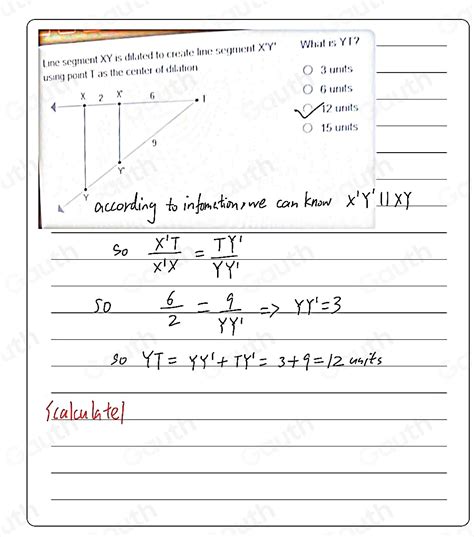 Line segment XY is dilated to create line segment X'Y'
using point T as the center of dilation.
X 2 X' 6 T
9
Y'
Y
What is YT?
3 units
6 units
12 units
15 units
according to infomation, we can know X'Y' || XY
so X'T/X'X = TY'/YY'
so 6/2 = 9/YY' => YY'=3
so YT = YY' + TY' = 3+9=12 units
Gauth